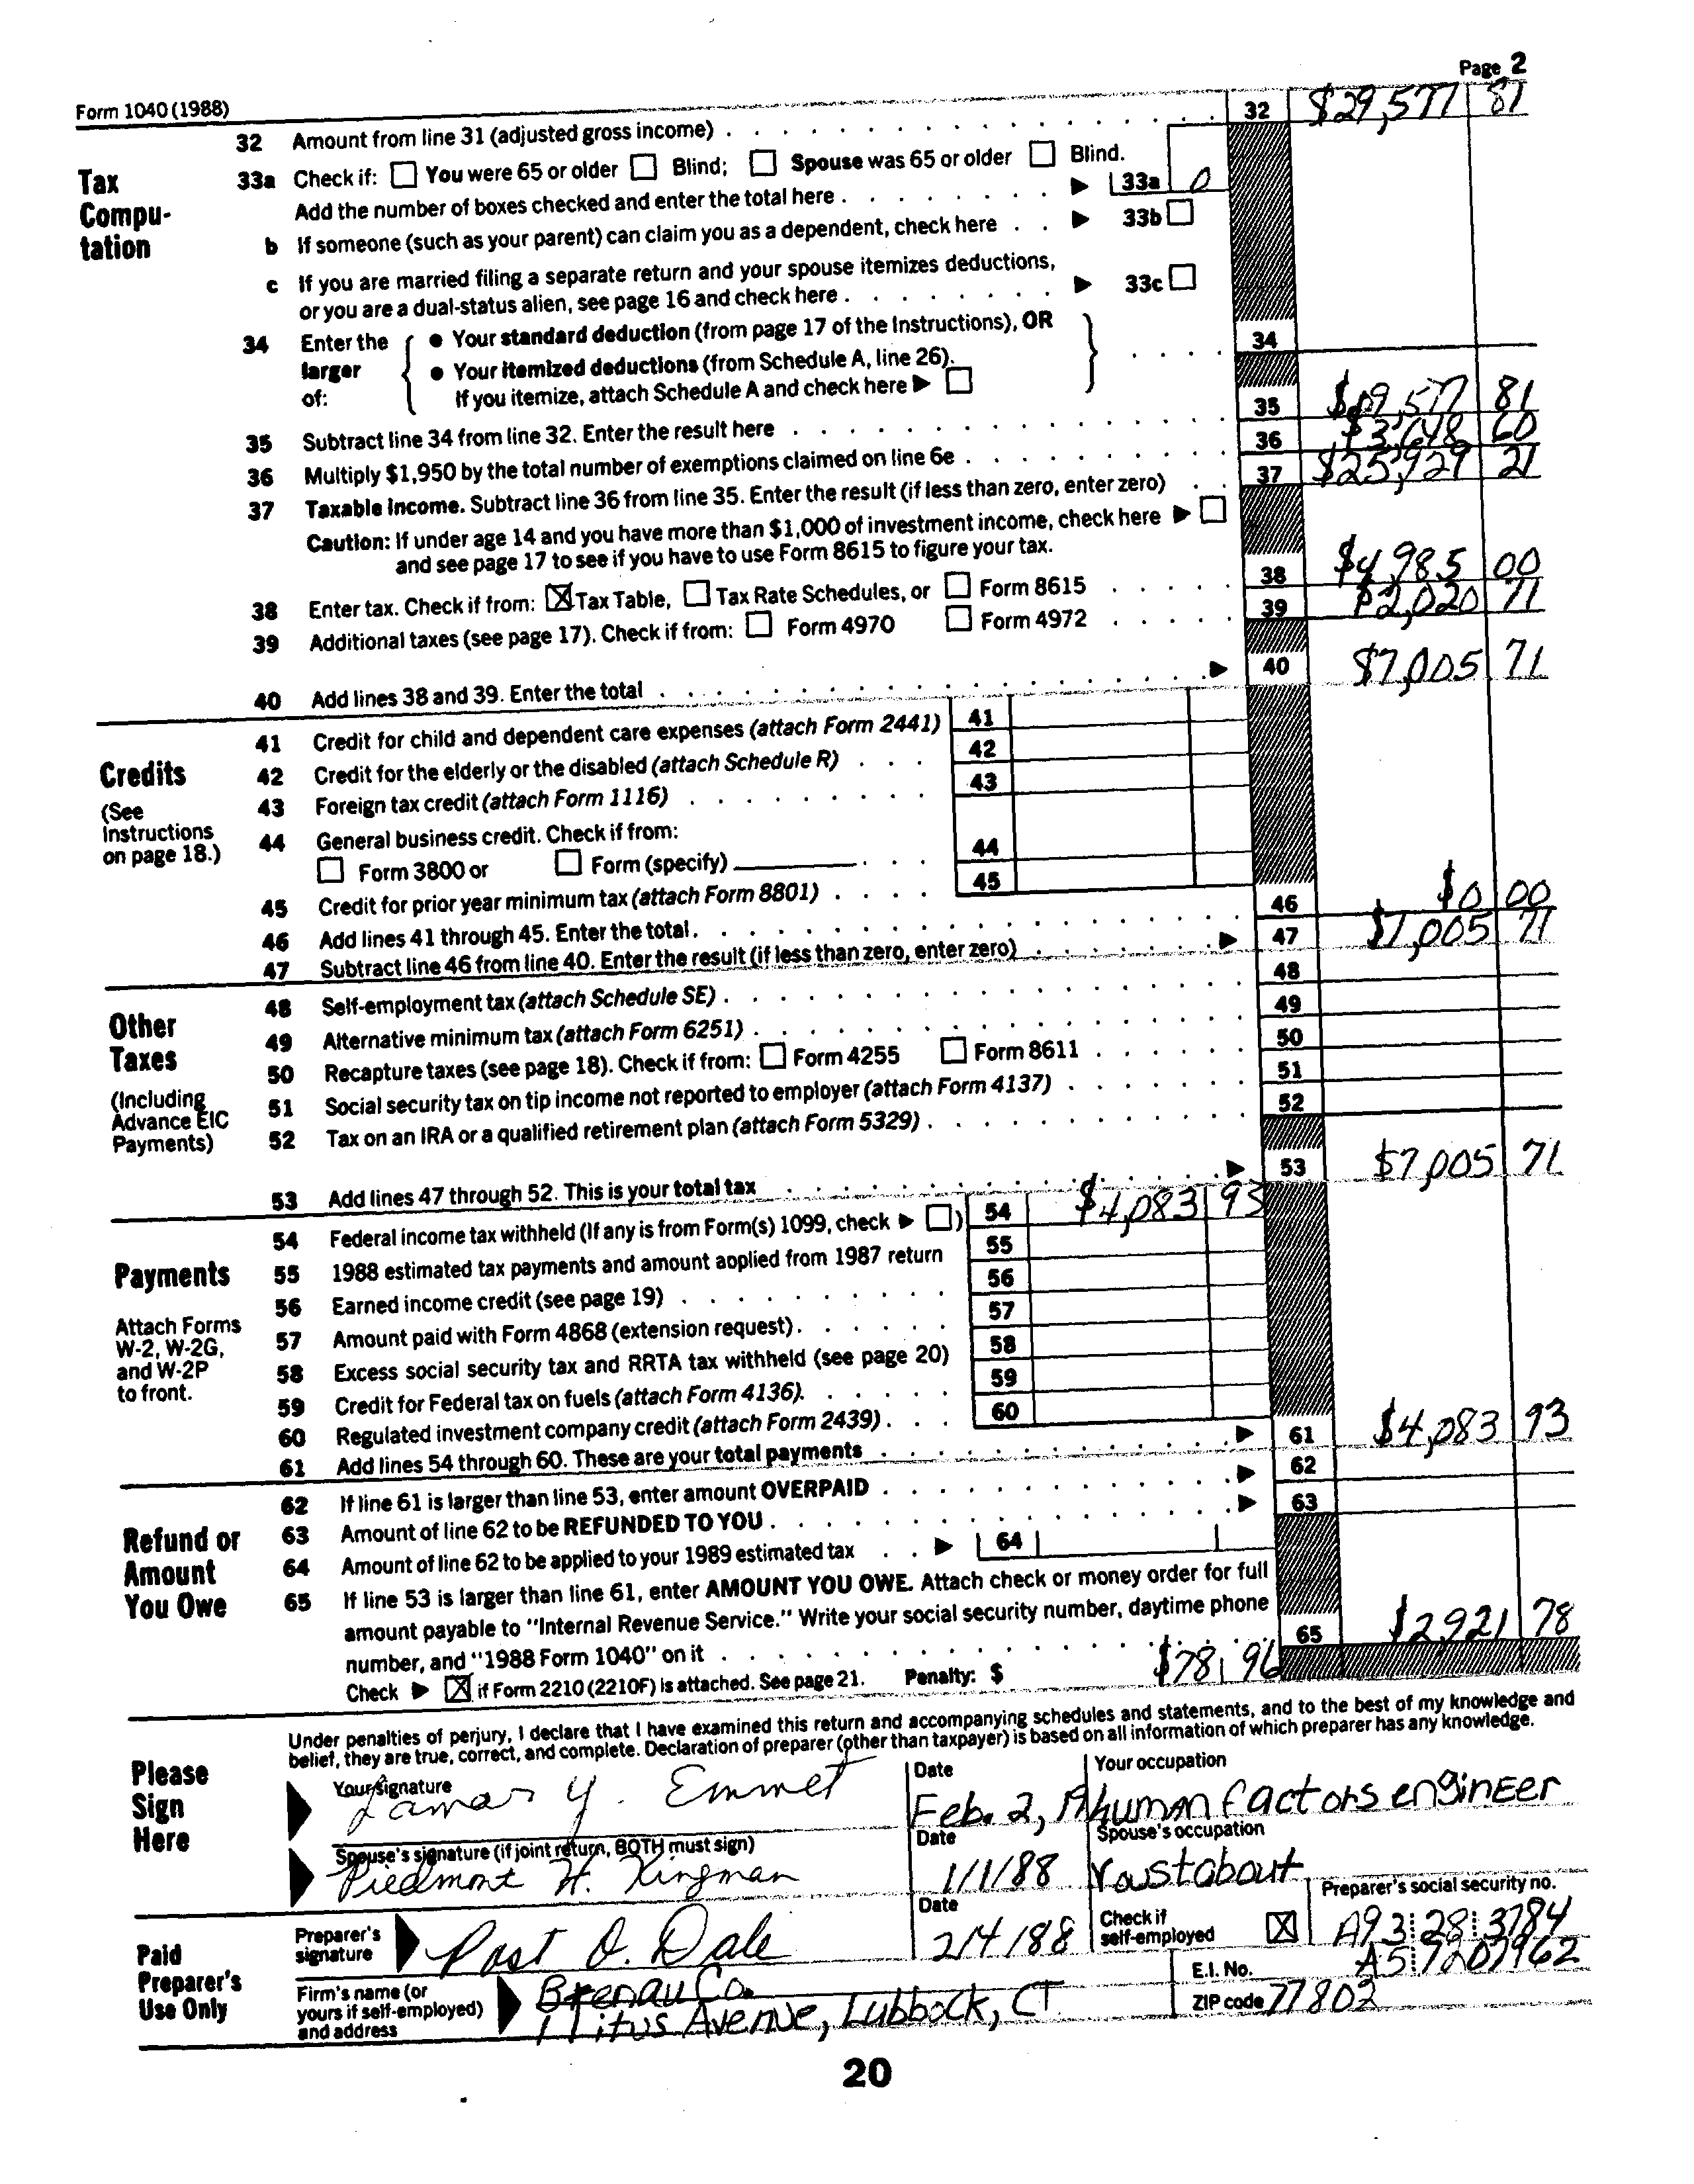 Page 2
Form 1040 (1988)
32 Amount from line 31 (adjusted gross income) 32 $29,577 81
Tax Compu- tation
33a Check if: You were 65 or older Blind; Spouse was 65 or older Blind.
Add the number of boxes checked and enter the total here 33a 0
b If someone (such as your parent) can claim you as a dependent, check here 33b
c If you are married filing a separate return and your spouse itemizes deductions,
or you are a dual-status alien, see page 16 and check here 33c
34 Enter the larger of: { • Your standard deduction (from page 17 of the Instructions), OR
• Your itemized deductions (from Schedule A, line 26).
If you itemize, attach Schedule A and check here } 34
35 Subtract line 34 from line 32. Enter the result here 35 9,577 81
36 Multiply $1,950 by the total number of exemptions claimed on line 6e 36 $3,648 60
37 Taxable income. Subtract line 36 from line 35. Enter the result (if less than zero, enter zero) 37 $25,929 21
Caution: If under age 14 and you have more than $1,000 of investment income, check here
and see page 17 to see if you have to use Form 8615 to figure your tax.
38 Enter tax. Check if from: X Tax Table, Tax Rate Schedules, or Form 8615 38 $4,985 00
39 Additional taxes (see page 17). Check if from: Form 4970 Form 4972 39 $2,020 71
40 Add lines 38 and 39. Enter the total 40 $7,005 71
Credits
(See Instructions on page 18.)
41 Credit for child and dependent care expenses (attach Form 2441) 41
42 Credit for the elderly or the disabled (attach Schedule R) 42
43 Foreign tax credit (attach Form 1116) 43
44 General business credit. Check if from:
Form 3800 or Form (specify) 44
45 Credit for prior year minimum tax (attach Form 8801) 45
46 Add lines 41 through 45. Enter the total 46 $0 00
47 Subtract line 46 from line 40. Enter the result (if less than zero, enter zero) 47 $7,005 71
Other Taxes
(Including Advance EIC Payments)
48 Self-employment tax (attach Schedule SE) 48
49 Alternative minimum tax (attach Form 6251) 49
50 Recapture taxes (see page 18). Check if from: Form 4255 Form 8611 50
51 Social security tax on tip income not reported to employer (attach Form 4137) 51
52 Tax on an IRA or a qualified retirement plan (attach Form 5329) 52
53 Add lines 47 through 52. This is your total tax 53 $7,005 71
Payments
Attach Forms W-2, W-2G, and W-2P to front.
54 Federal income tax withheld (If any is from Form(s) 1099, check ) 54 $4,083 93
55 1988 estimated tax payments and amount applied from 1987 return 55
56 Earned income credit (see page 19) 56
57 Amount paid with Form 4868 (extension request) 57
58 Excess social security tax and RRTA tax withheld (see page 20) 58
59 Credit for Federal tax on fuels (attach Form 4136) 59
60 Regulated investment company credit (attach Form 2439) 60
61 Add lines 54 through 60. These are your total payments 61 $4,083 93
Refund or Amount You Owe
62 If line 61 is larger than line 53, enter amount OVERPAID 62
63 Amount of line 62 to be REFUNDED TO YOU 63
64 Amount of line 62 to be applied to your 1989 estimated tax 64
65 If line 53 is larger than line 61, enter AMOUNT YOU OWE. Attach check or money order for full
amount payable to "Internal Revenue Service." Write your social security number, daytime phone
number, and "1988 Form 1040" on it 65 $2,921 78
Check X if Form 2210 (2210F) is attached. See page 21. Penalty: $ $78 96
Please Sign Here
Under penalties of perjury, I declare that I have examined this return and accompanying schedules and statements, and to the best of my knowledge and
belief, they are true, correct, and complete. Declaration of preparer (other than taxpayer) is based on all information of which preparer has any knowledge.
Your signature Date Your occupation
Lamar Y. Emmet Feb. 2, human factors engineer
Spouse's signature (if joint return, BOTH must sign) Date Spouse's occupation
Piedmont H. Kingman 1/1/88 roustabout
Paid Preparer's Use Only
Preparer's signature Date Check if self-employed X Preparer's social security no.
Post O. Dale 2/4/88 A93 28 3784
Firm's name (or yours if self-employed) and address E.I. No. A5 7207962
Brenau Co.
Titus Avenue, Lubbock, CT ZIP code 77802
20